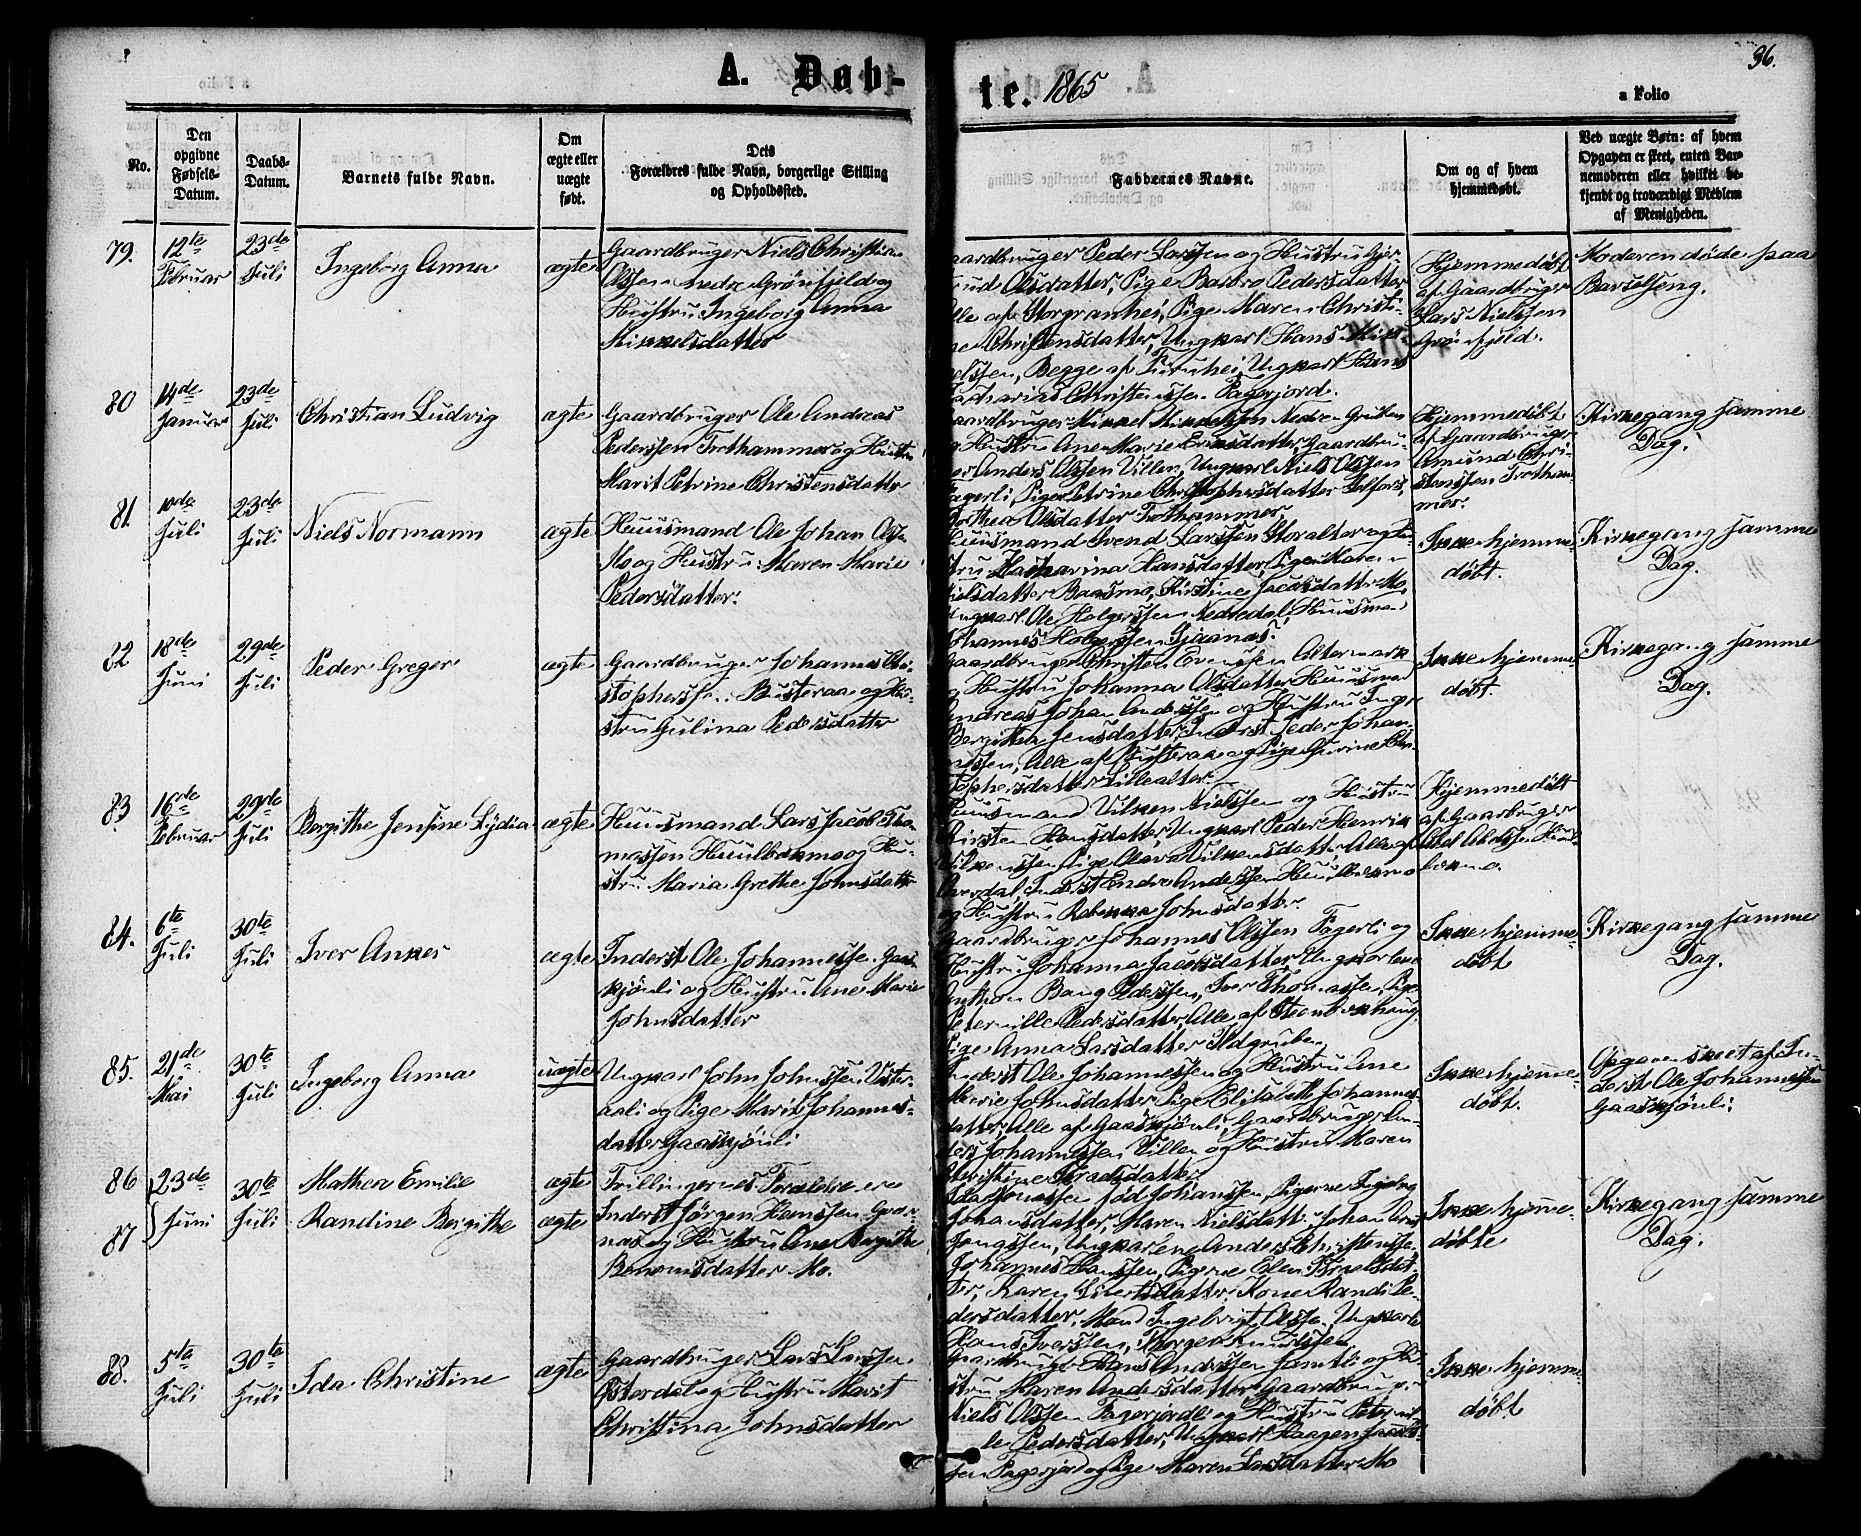 36.
A. Døb-
te. 1865
a Folio
No.
Den opgivne Fødsels-Datum.
Daabs-Datum.
Barnets fulde Navn.
Om ægte eller uægte født.
Dets Forældres fulde Navn, borgerlige Stilling og Opholdssted.
Faddernes Navne.
Om og af hvem hjemmedøbt.
Ved uægte Børn: af hvem Opgaven er skeet, enten Barnemoderen eller hvilket bekjendt og troværdigt Medlem af Menigheden.
79.
12te Februar
23de Juli
Ingeborg Anna
ægte
Gaardbruger Niels Christian
Olssen nedre Grønfjeld og
Hustru Ingeborg Anna
Mikkelsdatter
Gaardbruger Peder Larssen og Hustru
Olsdatter, Pige Barbro Pedersdatter
Alle af Storgranhei, Pige Maren Christi-
ne Christensdatter, Ungkarl Hans Mik-
kelssen, Begge af Furuhei, Ungkarl
Zacharias Christenssen Fagerjord.
Hjemmedøbt
af Gaardbruger
Lars Nielssen
Grønfjeld.
Moderen døde paa
Barselseng.
80
14de Januar
23de Juli
Christian Ludvig
ægte
Gaardbruger Ole Andreas
Pederssen Trothammer og Hustru
Marit Petrine Christensdatter
Gaardbruger Mikkel Mikkelssen Nedre
og Hustru Ane Marie Eriksdatter, Gaardbru-
ger Anders Olssen Villen, Ungkarl Niels Olssen
Fagerli, Piger Petrine Christophersdatter Selfors,
Dorthea Olsdatter Trothammer.
Hjemmedøbt
af Gaardbruger
Amund Chri-
stenssen Trotham-
mer.
Kirkegang samme
Dag.
81.
10de Juli
23de Juli
Niels Normann
ægte
Huusmand Ole Johan Olss.
Mo og Hustru Maren Marie
Pedersdatter.
Huusmand Svend Larssen Storalter og Hu-
stru Katharina Hansdatter, Piger Maren
Nielsdatter Baasmo, Kirstine Jacobsdatter Mo,
Ungkarl Ole Holgerssen Nedredal, Huusmand
Johannes Holgerssen Gjaanæs.
Ikke hjemme-
døbt.
Kirkegang samme
Dag.
82
18de Juni
29de Juli
Peder Greger
ægte
Gaardbruger Johannes Chri-
stopherssen Busteraa og Hu-
stru Gulina Pedersdatter
Gaardbruger Christen Evenssen Altermark
og Hustru Johanna Olsdatter, Huusmand
Andreas Johan Anderssen og Hustru Inger
Bergitha Jensdatter, Inderst Peder Johan-
nessen, Alle af Busteraa og Pige Gurine Chri-
stophersdatter Lillealter.
Ikke hjemme-
døbt.
Kirkegang samme
Dag.
83.
16de Februar
29de Juli
Bergithe Jensine Lydia
ægte
Huusmand Lars Jacob Tho-
massen Huulbækmo og Hu-
stru Maria Grethe Johnsdatter
Huusmand Vilken Nielssen og Hustru
Kirsten Hansdatter, Ungkarl Peder Henrik
Vilkenssen, Pige Olava Vilkensdatter, Alle af
Averdal, Inderst Endre Anderssen Huulbækmo
og Hustru Rebekka Johnsdatter.
Hjemmedøbt
af Gaardbruger
Abel Abelssen Huul-
bækmo.
84.
6te Juli
30te Juli
Iver Anker
ægte
Inderst Ole Johannessen Gaas-
kjønli og Hustru Ane Marie
Johnsdatter
Gaardbruger Johannes Olssen Fagerli og
Hustru Johanna Jacobsdatter, Ungkarlene
Anthon Bang Pederssen, Iver Thomassen, Pige
Peternille Pedersdatter, Alle af Steenbækhaug,
Pige Anna Larsdatter Ildgruben
Ikke hjemme-
døbt
Kirkegang samme
Dag.
85.
21de Mai
30te Juli
Ingeborg Anna
uægte
Ungkarl John Johnssen Uster-
aali og Pige Marit Johannes-
datter Gaaskjønli
Inderst Ole Johannessen og Hustru Ane
Marie Johnsdatter, Pige Elisabeth Johannes-
datter, Alle af Gaaskjønli, Gaardbruger An-
ders Johannessen Villen og Hustru Maren
Christine Pedersdatter
Ikke hjemme-
døbt.
Opgaven skeet af In-
derst Ole Johannessen
Gaaskjønli.
86
87
23de Juni
30te Juli
Mathea Emilie
Randine Bergithe
ægte
ægte
Trillingernes Forældre ere
Inderst Jørgen Hanssen Grøn-
næs og Hustru Ane Bergithe
Benonisdatter Mo.
Johansdatter, Maren Nielsdatter, Johan
Ungkarlene Anders Christenssen,
Johannes Hanssen, Pigerne Elen
Karen Sivertsdatter, Kone Randi Pe-
dersdatter, Mand Ingebrigt Olssen, Ungkarle
Hans Iverssen,
Ikke hjemme-
døbte
Kirkegang samme
Dag.
88.
5te Juli
30te Juli
Ida Christine
ægte
Gaardbruger Lars Larssen
Østerdal og Hustru Marit
Christina Johnsdatter
Gaardbruger Hans Anderssen og Hu-
stru Maren Andersdatter, Gaardbruger
Niels Olssen Fagerjordli og Hustru Peternil-
le Pedersdatter, Ungkarl Haagen Jacobs-
sen Fagerjord og Pige Maren Larsdatter Mo
Ikke hjemme-
døbt